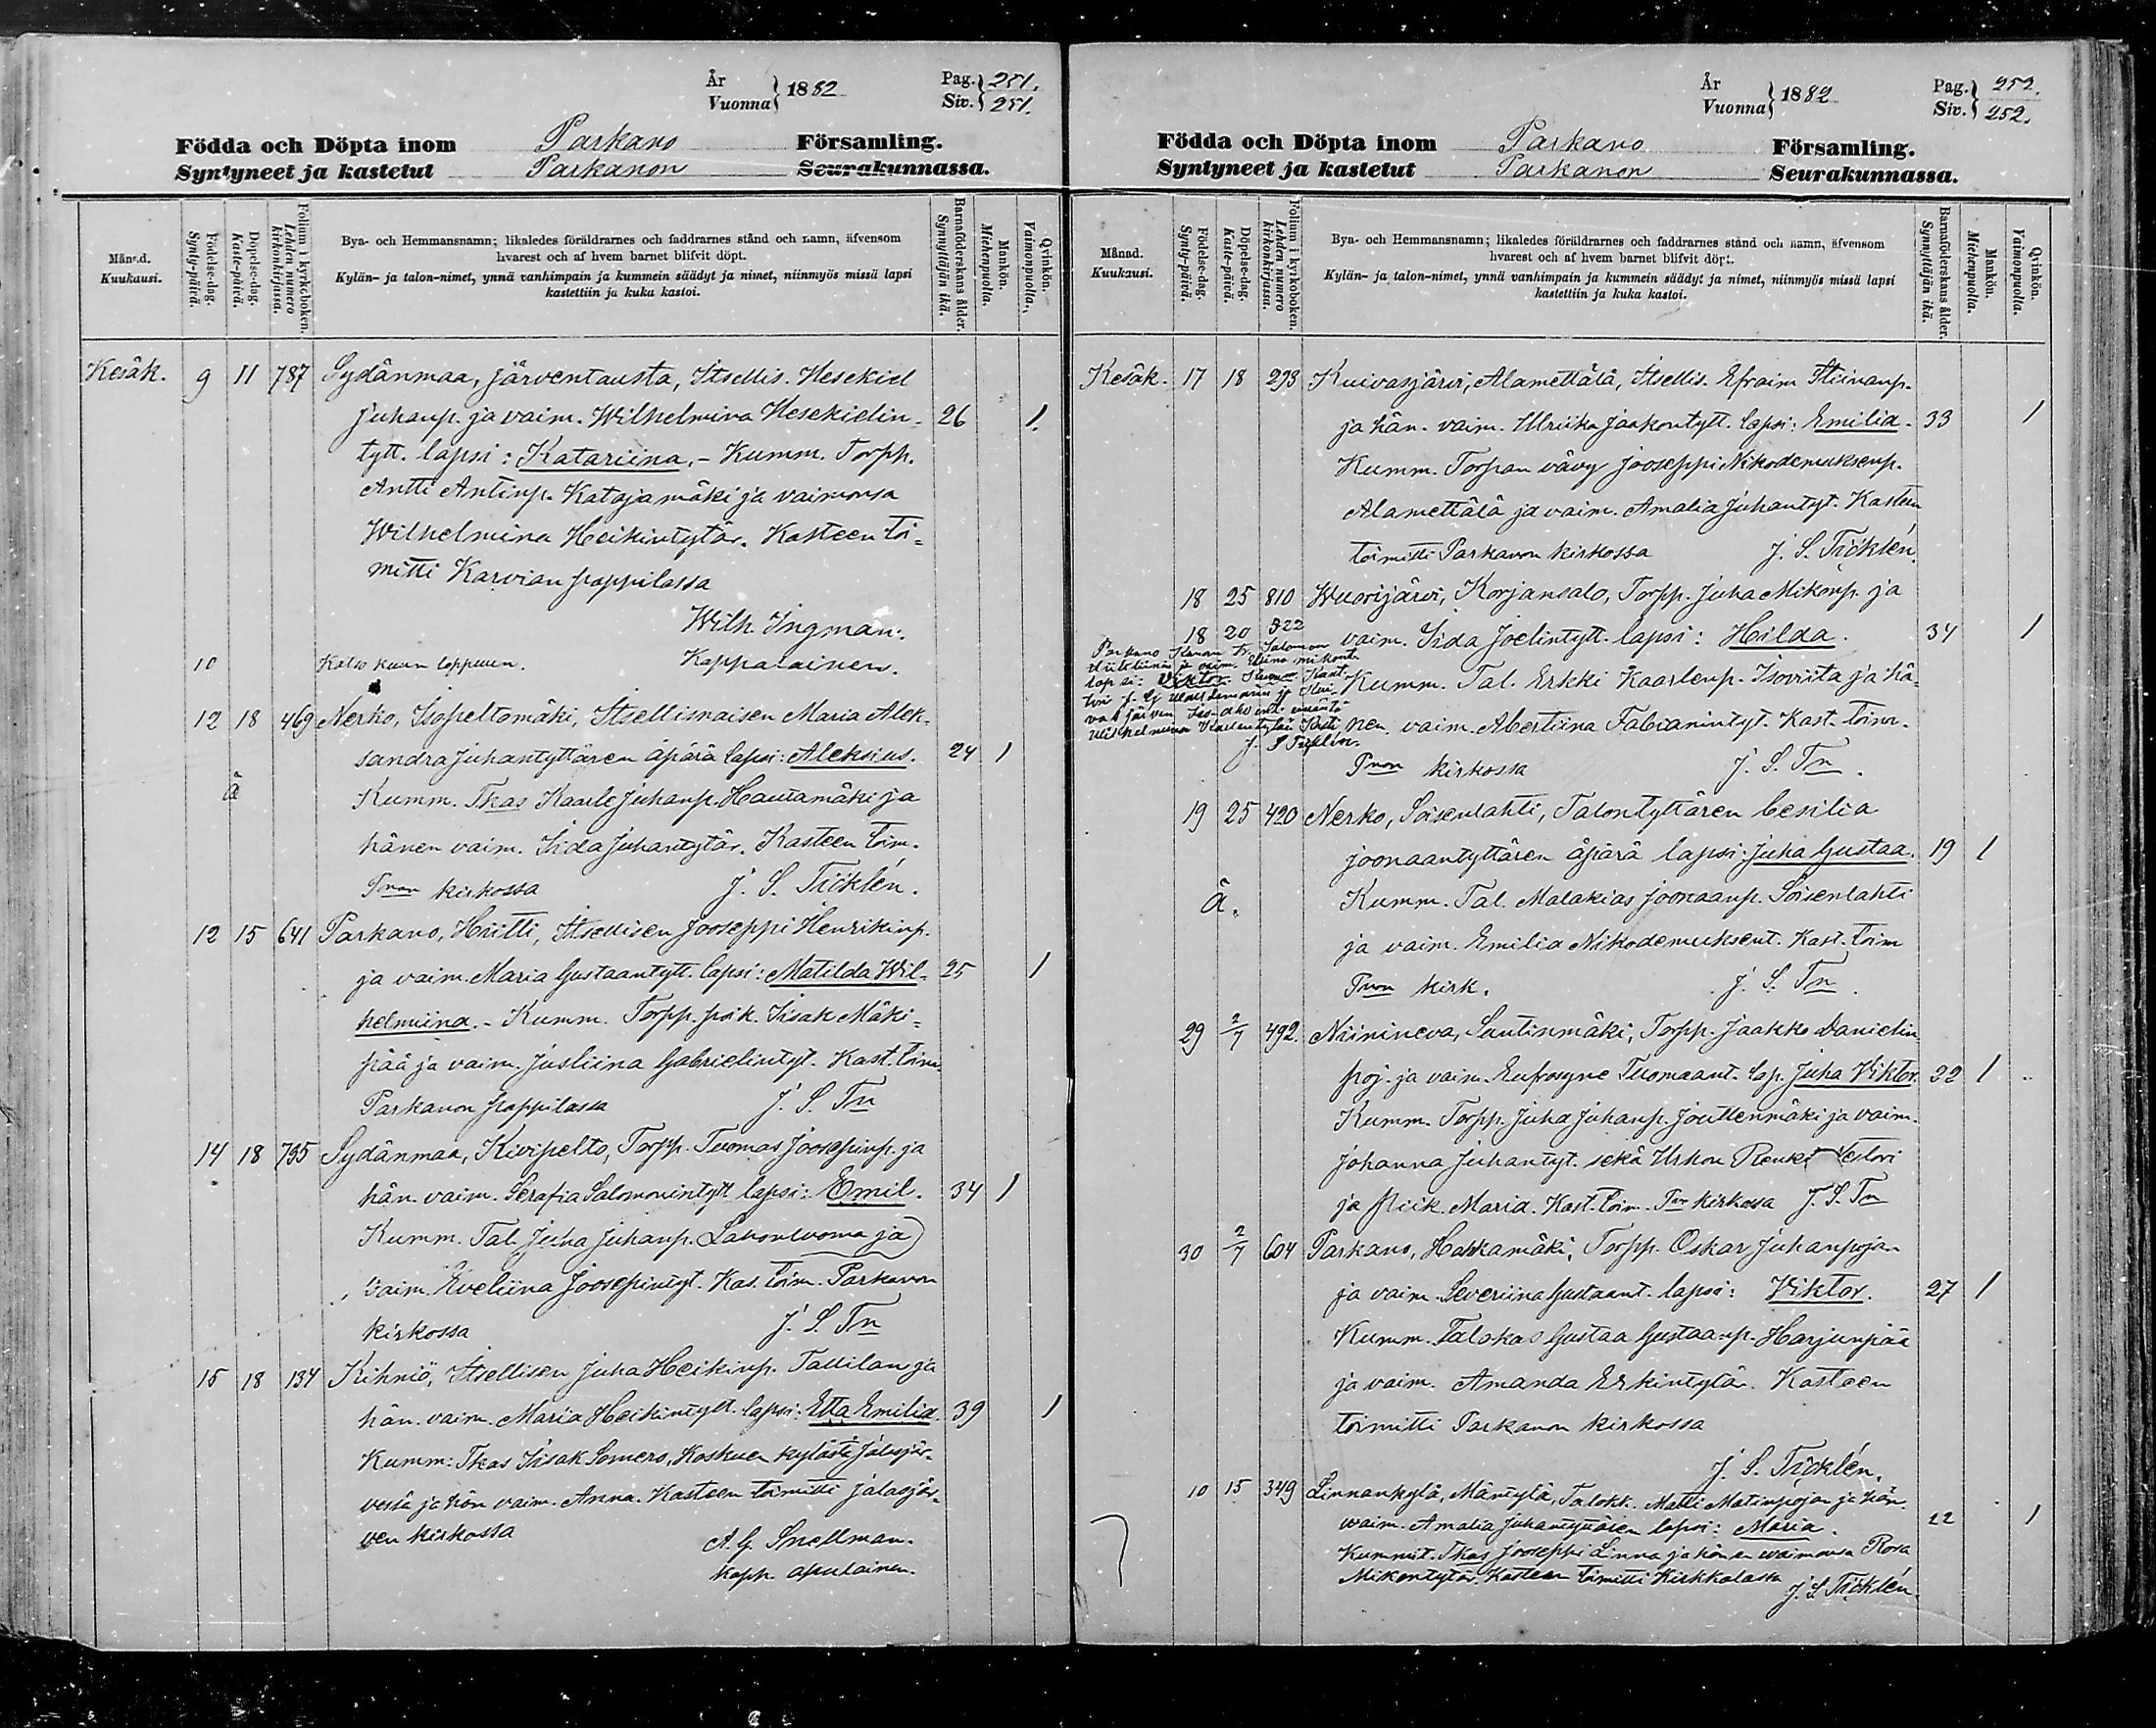 År
Vuonna } 1882
Pag. } 251.
Siv. } 251.
Födda och Döpta inom Parkano Församling.
Syntyneet ja kastetut Parkanon Seurakunnassa.
Månad.
Kuukausi.
Födelse-dag.
Synty-päivä.
Döpelse-dag.
Kaste-päivä.
Folium i kyrkoboken.
Lehden numero kirkonkirjassa.
Bya- och Hemmansnamn; likaledes föräldrarnes och faddrarnes stånd och namn, äfvensom
hvarest och af hvem barnet blifvit döpt.
Kylän- ja talon-nimet, ynnä vanhimpain ja kummein säädyt ja nimet, niinmyös missä lapsi
kastettiin ja kuka kastoi.
Barnaföderskans ålder.
Synnyttäjän ikä.
Mankön.
Miehenpuolia.
Qvinkön.
Vaimonpuolia.
Kesäk. 9 11 787 Sydänmaa, Järventausta, Itsellis. Hesekiel
Juhanp. ja vaim. Wilhelmina Hesekielin- 26 1.
tytt. lapsi: Katariina. - Kumm. Torpp.
Antti Antinp. Katajamäki ja vaimonsa
Wilhelmina Heikintytär. Kasteen toi-
mitti Karvian pappilassa
Wilh. Ingman.
10 Katso kuun loppuun. Kappalainen.
12 18 469 Nerko, Isopeltomäki, Itsellisnaisen Maria Alek-
sandra Juhantyttären äpärä lapsi: Aleksius. 24 1
ä Kumm. Tkas Kaarle Juhanp. Hautamäki ja
hänen vaim. Iida Juhantytär. Kasteen toim.
Pnon kirkossa J. S. Tiöklén.
12 15 641 Parkano, Hiitti, Itsellisen Jooseppi Henrikinp.
ja vaim. Maria Gustaantytt. lapsi: Matilda Wil- 25 1
helmiina. - Kumm. Torpp. poik. Iisak Mäki-
pää ja vaim. Justiina Gabrielintyt. Kast. toim.
Parkanon pappilassa J. S. Tn
14 18 795 Sydänmaa, Kivipelto, Torpp. Tuomas Joosepinp. ja
hän. vaim. Serafia Salomonintytt. lapsi: Emil. 34 1
Kumm. Tal. Juha Juhanp. Lavonluoma ja
vaim. Eveliina Joosepintyt. Kas. toim. Parkanon
kirkossa J. S. Tn
15 18 134 Kihniö, Itsellisen Juha Heikinp. Tallilan ja
hän. vaim. Maria Heikintytt. lapsi: Etta Emilia. 39 1
Kumm: Tkas Iisak Somero, Koskuen kylästä Jalasjär-
vessä ja hän vaim. Anna. Kasteen toimitti Jalasjär-
ven kirkossa A. G. Snellman.
kapp. apulainen.
År
Vuonna } 1882
Pag. } 252.
Siv. } 252.
Födda och Döpta inom Parkano Församling.
Syntyneet ja kastetut Parkanon Seurakunnassa.
Månad.
Kuukausi.
Födelse-dag.
Synty-päivä.
Döpelse-dag.
Kaste-päivä.
Folium i kyrkoboken.
Lehden numero kirkonkirjassa.
Bya- och Hemmansnamn; likaledes föräldrarnes och faddrarnes stånd och namn, äfvensom
hvarest och af hvem barnet blifvit döpt.
Kylän- ja talon-nimet, ynnä vanhimpain ja kummein säädyt ja nimet, niinmyös missä lapsi
kastettiin ja kuka kastoi.
Barnaföderskans ålder.
Synnyttäjän ikä.
Mankön.
Miehenpuolia.
Qvinkön.
Vaimonpuolia.
Kesäk. 17 18 293 Kuivasjärvi, Alamettälä, Itsellis. Efraim Stiinanp.
ja hän. vaim. Ulriika Jaakontytt. lapsi: Emilia. 33 1
Kumm. Torpan vävy Jooseppi Nikodemuksenp.
Alamettälä ja vaim. Amalia Juhantyt. Kasteen
toimitti Parkanon kirkossa J. S. Tiöklén.
18 25 810 Wuorijärvi, Korjansalo, Torpp. Juha Mikonp. ja
vaim. Iida Joelintytt. lapsi: Hilda. 34 1
18 20 322
Parkano Salomon
ja vaim. Mikont.
lapsi: Viktor.
J. S. Tiöklén.
Kumm. Tal. Erkki Kaarlenp. Isoviita ja hä-
nen vaim. Abertiina Fabianintyt. Kast. toim.
Pnon kirkossa J. S. Tn.
19 25 420 Nerko, Soisenlahti, Talontyttären Cesilia
Joonaantyttären äpärä lapsi: Juha Gustaa. 19 1
ä. Kumm. Tal. Malakias Joonaanp. Soisenlahti
ja vaim. Emilia Nikodemuksent. Kast. toim
Pnon kirk. J. S. Tn.
29 2/7 492. Niinineva, Santinmäki, Torpp. Jaakko Danielin
poj. ja vaim. Eufrosyne Tuomaant. lap. Juha Viktor. 22 1
Kumm. Torpp. Juha Juhanp. Jouttenmäki ja vaim.
Johanna Juhantyt. sekä Urhon Renki Nestori
ja piik. Maria. Kast. toim. Pnon kirkossa J. S. Tn
30 2/7 604 Parkano, Hakkamäki, Torpp. Oskar Juhanpojan
ja vaim. Severiina Gustaant. lapsi: Viktor. 27 1
Kumm. Talokas Gustaa Gustaanp. Harjunpää
ja vaim. Amanda Erkintytär. Kasteen
toimitti Parkanon kirkossa
J. S. Tiöklén.
10 15 349 Linnankylä, Mäntylä, Talokk. Matti Matinpojan ja hän
waim. Amalia Juhantyttären lapsi: Maria. 22 1
Kummit. Tkas Jooseppi Linna ja hänen waimonsa Rosa
Mikontytär. Kasteen toimitti Kirkkolassa
J. S. Tiöklén.